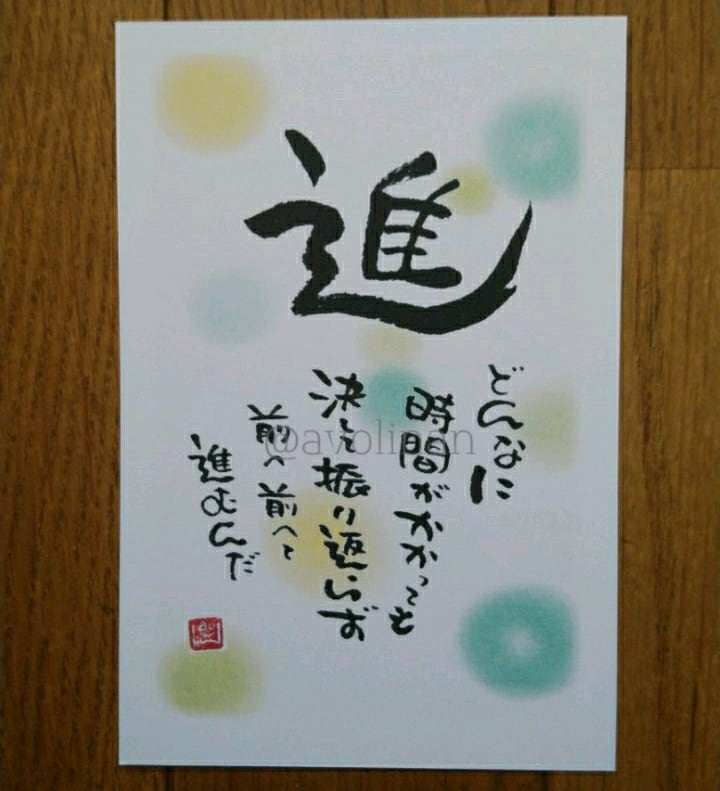 進
どんなに
時間がかかっても
決して振り返らず
前へ前へと
進むんだ
@ayolipan